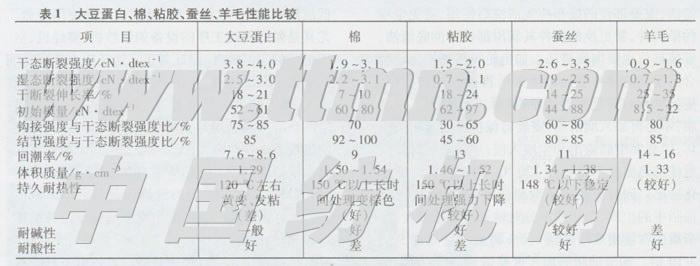 表1 大豆蛋白、棉、粘胶、蚕丝、羊毛性能比较
项 目 大豆蛋白 棉 粘胶 蚕丝 羊毛
干态断裂强度/cN·dtex⁻¹ 3.8~4.0 1.9~3.1 1.5~2.0 2.6~3.5 0.9~1.6
湿态断裂强度/cN·dtex⁻¹ 2.5~3.0 2.2~3.1 0.7~1.1 1.9~2.5 0.7~1.3
干断裂伸长率/% 18~21 7~10 18~24 14~25 25~35
初始模量/cN·dtex⁻¹ 52~61 60~80 62~97 44~88 8.5~22
钩接强度与干态断裂强度比/% 75~85 70 30~65 60~80 80
结节强度与干态断裂强度比/% 85 92~100 45~60 80~85 85
回潮率/% 7.6~8.6 9 13 11 14~16
体积质量/g·cm⁻³ 1.29 1.50~1.54 1.46~1.52 1.34~1.38 1.33
持久耐热性 120℃左右 150℃以上长时 150℃以上长时 148℃以下稳定 (较好)
黄变、发粘 间处理变棕色 间处理强力下降 (较好)
(差) (好) (较好)
耐碱性 一般 好 好 较好 差
耐酸性 好 差 差 好 好
www.ttmn.com
中国纺机网